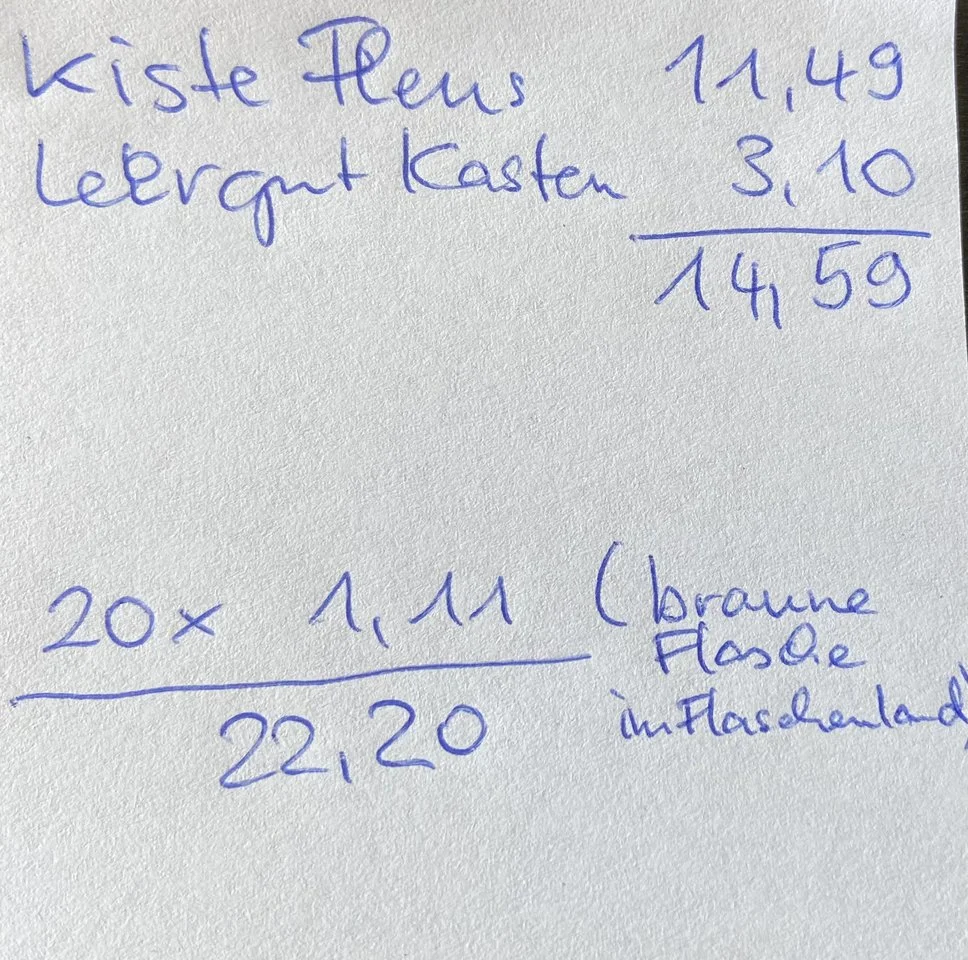 Kiste Flens 11,49
Leergut Kasten 3,10
14,59
20x 1,11 (braune
Flasche
im Flaschenland)
22,20